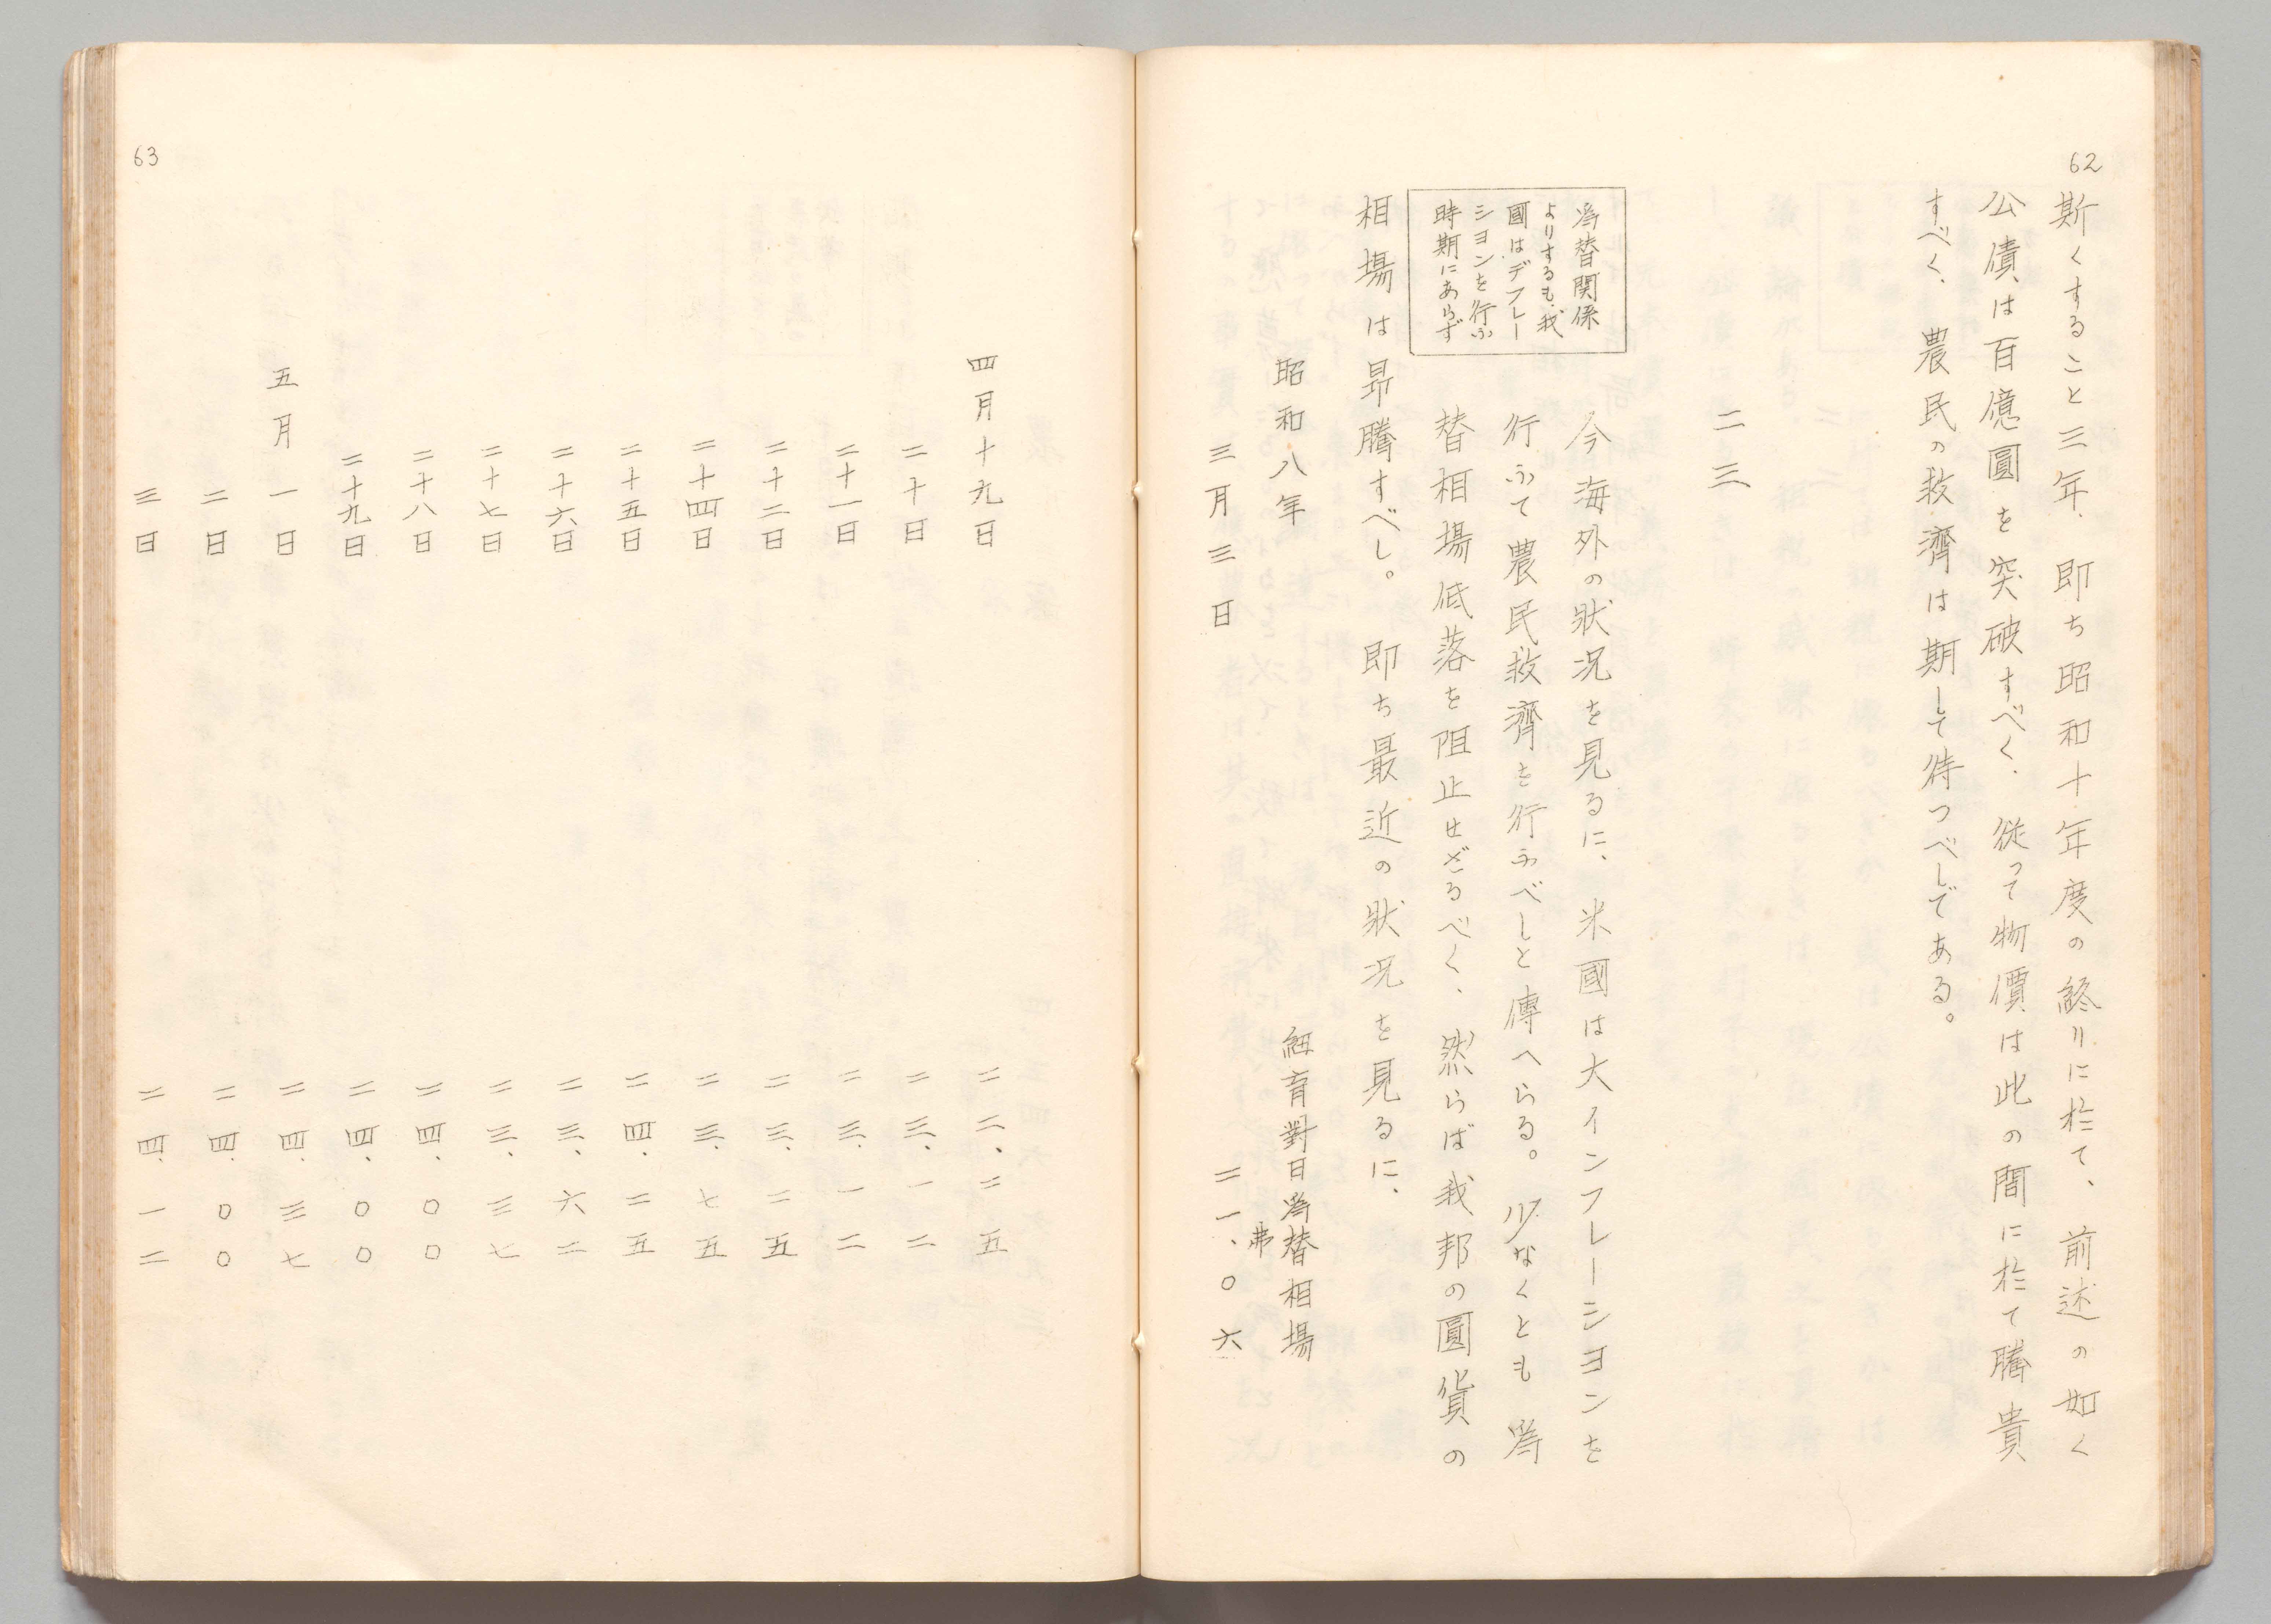 62
斯くすること三年、即ち昭和十年度の終りに於て、前述の如く
公債は百億圓を突破すべく、従って物價は此の間に於て騰貴
すべく、農民の救濟は期して待つべしである。
二三
為替関係
よりするも、我
國はデフレー
シヨンを行ふ
時期にあらず
今海外の狀況を見るに、米國は大インフレーシヨンを
行ふて農民救濟を行ふべしと傳へらる。少なくとも為
替相場低落を阻止せざるべく、然らば我邦の圓貨の
相場は昻騰すべし。即ち最近の狀況を見るに、
昭和八年 紐育對日為替相場
三月三日 二一、〇六弗
63
四月十九日 二二、二五
二十日 二三、一二
二十一日 二三、一二
二十二日 二三、二五
二十四日 二三、七五
二十五日 二四、二五
二十六日 二三、六二
二十七日 二三、三七
二十八日 二四、〇〇
二十九日 二四、〇〇
五月一日 二四、三七
二日 二四、〇〇
三日 二四、一二